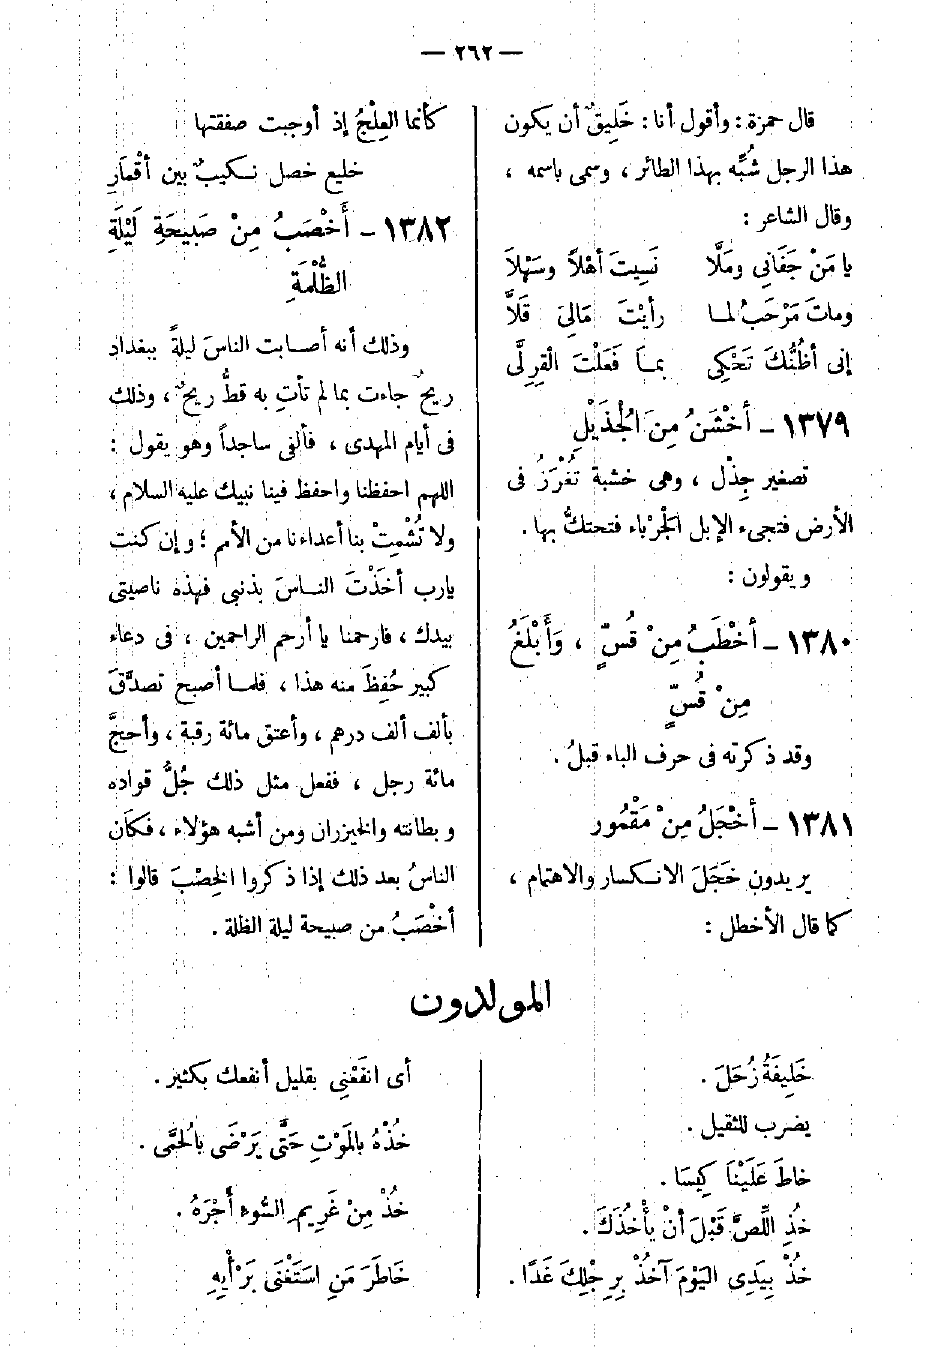 — ٢٦٢ —
قال حمزة : وأقول أنا : خَلِيقٌ أن يكون
هذا الرجل شُبِّه بهذا الطائر ، وسمى باسمه ،
وقال الشاعر :
يا مَنْ جَفَانِي ومَلَّا نَسِيتَ أهْلاً وسَهْلاَ
وماتَ مَرْحَبُ لمـا رأيْتَ مَالِيَ قَلاَّ
إنى أظُنُّكَ تَحْكِى بمـا فَعَلْتَ الْقِرِلَّى
١٣٧٩ – أخْشَنُ مِنَ الْجُذَيْلِ
تصغير جِذْل ، وهى خشبة تُغْرَزُ فى
الأرض فتجىء الإبل الْجَرْباء فتحتكُّ بها .
ويقولون :
١٣٨٠ – أخْطَبُ مِنْ قُسٍّ ، وَأَبْلَغُ
مِنْ قُسٍّ
وقد ذكرته فى حرف الباء قبلُ .
١٣٨١ – أخْجَلُ مِنْ مَقْمُورٍ
يريدون خَجَلَ الانـكسار والاهتمام ،
كما قال الأخطل :
كأنما العِلْجُ إذ أوجبت صفقتها
خليع خصل نـكيبٌ بين أقْمَارِ
١٣٨٢ – أَخْصَبُ مِنْ صَبِيحَةِ لَيْلَةِ
الظُّلْمَةِ
وذلك أنه أصـابت الناسَ ليلةً ببغداد
ريحٌ جاءت بما لم تأتِ به قطُّ ريحٌ ، وذلك
فى أيام المهدى ، فألفى ساجداً وهو يقول :
اللهم احفظنا واحفظ فينا نبيك عليه السلام ،
ولا تُشْمِتْ بنا أعداءنا من الأمم ؛ وإن كنت
يارب أخَذْتَ النـاسَ بذنبى فهذه ناصيتى
بيدك ، فارحمنا يا أرحم الراحمين ، فى دعاء
كبير حُفِظَ منه هذا ، فلمـا أصبح تصدَّقَ
بألف ألف درهم ، وأعتق مائة رقبة ، وأحجَّ
مائة رجل ، ففعل مثل ذلك جُلُّ قواده
وبطانته والخيزران ومن أشبه هؤلاء ، فـكان
الناسُ بعد ذلك إذا ذكروا الخِصْبَ قالوا :
أخْصَبُ من صبيحة ليلة الظلة .
المولدون
خَلِيفَةُ زُحَلَ .
يضرب للثقيل .
خاطَ عَلَيْنَا كِيسَا .
خُذِ اللِّصَّ قَبْلَ أنْ يأْخُذَكَ .
خُذْ بِيَدِى اليَوْمَ آخُذْ بِرِجْلِكَ غَدًا .
أى انفَعْنِى بقليل أنفعك بكثير .
خُذْهُ بالمَوْتِ حَتَّى يَرْضَى بالْحُمَّى .
خُذْ مِنْ غَرِيمِ السُّوءِ أَجْرَهُ .
خَاطَرَ مَنِ اسْتَغْنَى بَرَأْيِهِ